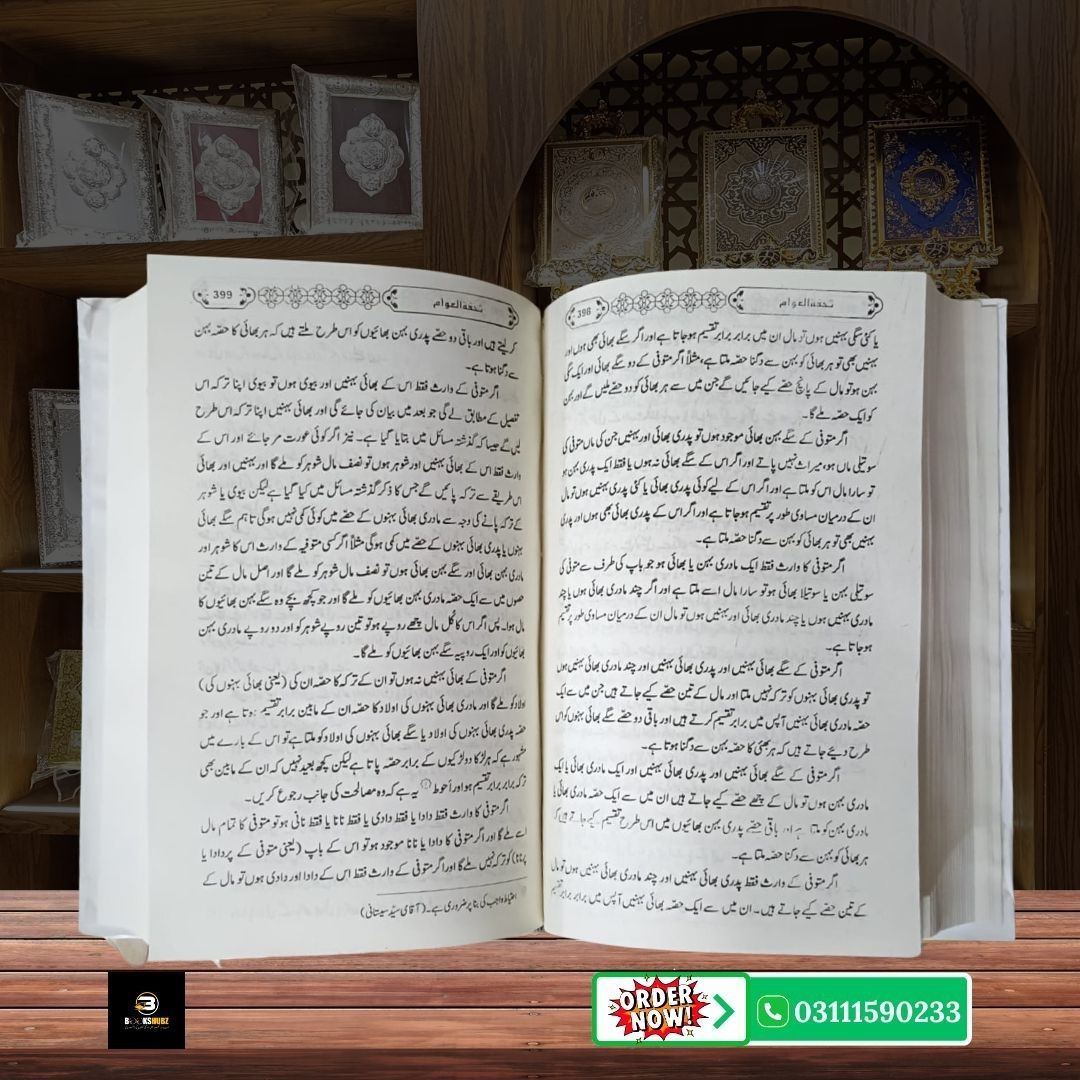 تحفۃ العوام
398
یا کئی سگی بہنیں ہوں تو مال ان میں برابر برابر تقسیم ہو جاتا ہے اور اگر سگے بھائی بھی ہوں اور
بہنیں بھی تو ہر بھائی کو بہن سے دگنا حصّہ ملتا ہے، مثلاً اگر متوفی کے دو سگے بھائی اور ایک سگی
بہن ہو تو مال کے پانچ حصّے کیے جائیں گے جن میں سے ہر بھائی کو دو حصّے ملیں گے اور بہن
کو ایک حصّہ ملے گا۔
اگر متوفی کے سگے بہن بھائی موجود ہوں تو پدری بھائی اور بہنیں جن کی ماں متوفی کی
سوتیلی ماں ہو، میراث نہیں پاتے اور اگر اس کے سگے بہن بھائی نہ ہوں یا فقط ایک پدری بہن ہو
تو سارا مال اس کو ملتا ہے اور اگر اس کے لیے کوئی پدری بھائی یا کئی پدری بہنیں ہوں تو مال
ان کے درمیان مساوی طور پر تقسیم ہو جاتا ہے اور اگر اس کے پدری بھائی بھی ہوں اور پدری
بہنیں بھی تو ہر بھائی کو بہن سے دگنا حصّہ ملتا ہے۔
اگر متوفی کا وارث فقط ایک مادری بہن یا بھائی ہو جو باپ کی طرف سے متوفی کی
سوتیلی بہن یا سوتیلا بھائی ہو تو سارا مال اسے ملتا ہے اور اگر چند مادری بھائی ہوں یا چند
مادری بہنیں ہوں یا چند مادری بھائی اور بہنیں ہوں تو مال ان کے درمیان مساوی طور پر تقسیم
ہو جاتا ہے۔
اگر متوفی کے سگے بھائی بہنیں اور پدری بھائی بہنیں اور چند مادری بھائی بہنیں ہوں
تو پدری بھائی بہنوں کو ترکہ نہیں ملتا اور مال کے تین حصّے کیے جاتے ہیں جن میں سے ایک
حصّہ مادری بھائی بہنیں آپس میں برابر تقسیم کرتے ہیں اور باقی دو حصّے سگے بھائی بہنوں کو اس
طرح دیے جاتے ہیں کہ ہر بھئی کا حصّہ بہن سے دگنا ہوتا ہے۔
اگر متوفی کے سگے بھائی بہنیں اور پدری بھائی بہنیں اور ایک مادری بھائی یا ایک
مادری بہن ہوں تو مال کے چھے حصّے کیے جاتے ہیں ان میں سے ایک حصّہ مادری بھائی یا
مادری بہن کو ملتا ہے اور باقی حصّے پدری بہن بھائیوں میں اس طرح تقسیم کیے جاتے ہیں کہ
ہر بھائی کو بہن سے دگنا حصّہ ملتا ہے۔
اگر متوفی کے وارث فقط پدری بھائی بہنیں اور چند مادری بھائی بہنیں ہوں تو مال
کے تین حصّے کیے جاتے ہیں۔ ان میں سے ایک حصّہ بھائی بہنیں آپس میں برابر برابر تقسیم
تحفۃ العوام
399
کر لیتے ہیں اور باقی دو حصّے پدری بہن بھائیوں کو اس طرح ملتے ہیں کہ ہر بھائی کا حصّہ بہن
سے دگنا ہوتا ہے۔
اگر متوفی کے وارث فقط اس کے بھائی بہنیں اور بیوی ہوں تو بیوی اپنا ترکہ اس
تفصیل کے مطابق لے گی جو بعد میں بیان کی جائے گی اور بھائی بہنیں اپنا ترکہ اس طرح
لیں گے جیسا کہ گذشتہ مسائل میں بتایا گیا ہے۔ نیز اگر کوئی عورت مر جائے اور اس کے
وارث فقط اس کے بھائی بہنیں اور شوہر ہوں تو نصف مال شوہر کو ملے گا اور بہنیں اور بھائی
اس طریقے سے ترکہ پائیں گے جس کا ذکر گذشتہ مسائل میں کیا گیا ہے لیکن بیوی یا شوہر
کے ترکہ پانے کی وجہ سے مادری بھائی بہنوں کے حصّے میں کوئی کمی نہیں ہوگی تاہم سگے بھائی
بہنوں یا پدری بھائی بہنوں کے حصّے میں کمی ہوگی مثلاً اگر کسی متوفیہ کے وارث اس کا شوہر اور
مادری بہن بھائی اور سگے بہن بھائی ہوں تو نصف مال شوہر کو ملے گا اور اصل مال کے تین
حصوں میں سے ایک حصّہ مادری بہن بھائیوں کو ملے گا اور جو کچھ بچے وہ سگے بہن بھائیوں کا
مال ہوا۔ پس اگر اس کا کُل مال چھے روپے ہو تو تین روپے شوہر کو اور دو روپے مادری بہن
بھائیوں کو اور ایک روپیہ سگے بہن بھائیوں کو ملے گا۔
اگر متوفی کے بھائی بہنیں نہ ہوں تو ان کے ترکہ کا حصّہ ان کی (یعنی بھائی بہنوں کی)
اولاد کو ملے گا اور مادری بھائی بہنوں کی اولاد کا حصّہ ان کے مابین برابر تقسیم ہوتا ہے اور جو
حصّہ پدری بھائی بہنوں کی اولاد یا سگے بھائی بہنوں کی اولاد کو ملتا ہے تو اس کے بارے میں
مشہور ہے کہ ہر لڑکا دو لڑکیوں کے برابر حصّہ پاتا ہے لیکن کچھ بعید نہیں کہ ان کے مابین بھی
ترکہ برابر برابر تقسیم ہو اور اَحوط ① یہ ہے کہ وہ مصالحت کی جانب رجوع کریں۔
اگر متوفی کا وارث فقط دادا یا فقط دادی یا فقط نانا یا فقط نانی ہو تو متوفی کا تمام مال
اسے ملے گا اور اگر متوفی کا دادا یا نانا موجود ہو تو اس کے باپ (یعنی متوفی کے پردادا یا
پرنانا) کو ترکہ نہیں ملے گا اور اگر متوفی کے وارث فقط اس کے دادا اور دادی ہوں تو مال کے
احتیاط واجب کی بنا پر ضروری ہے۔ (آقای سیّد سیستانی)
B
BOOKSHUBZ
ORDER NOW!
03111590233